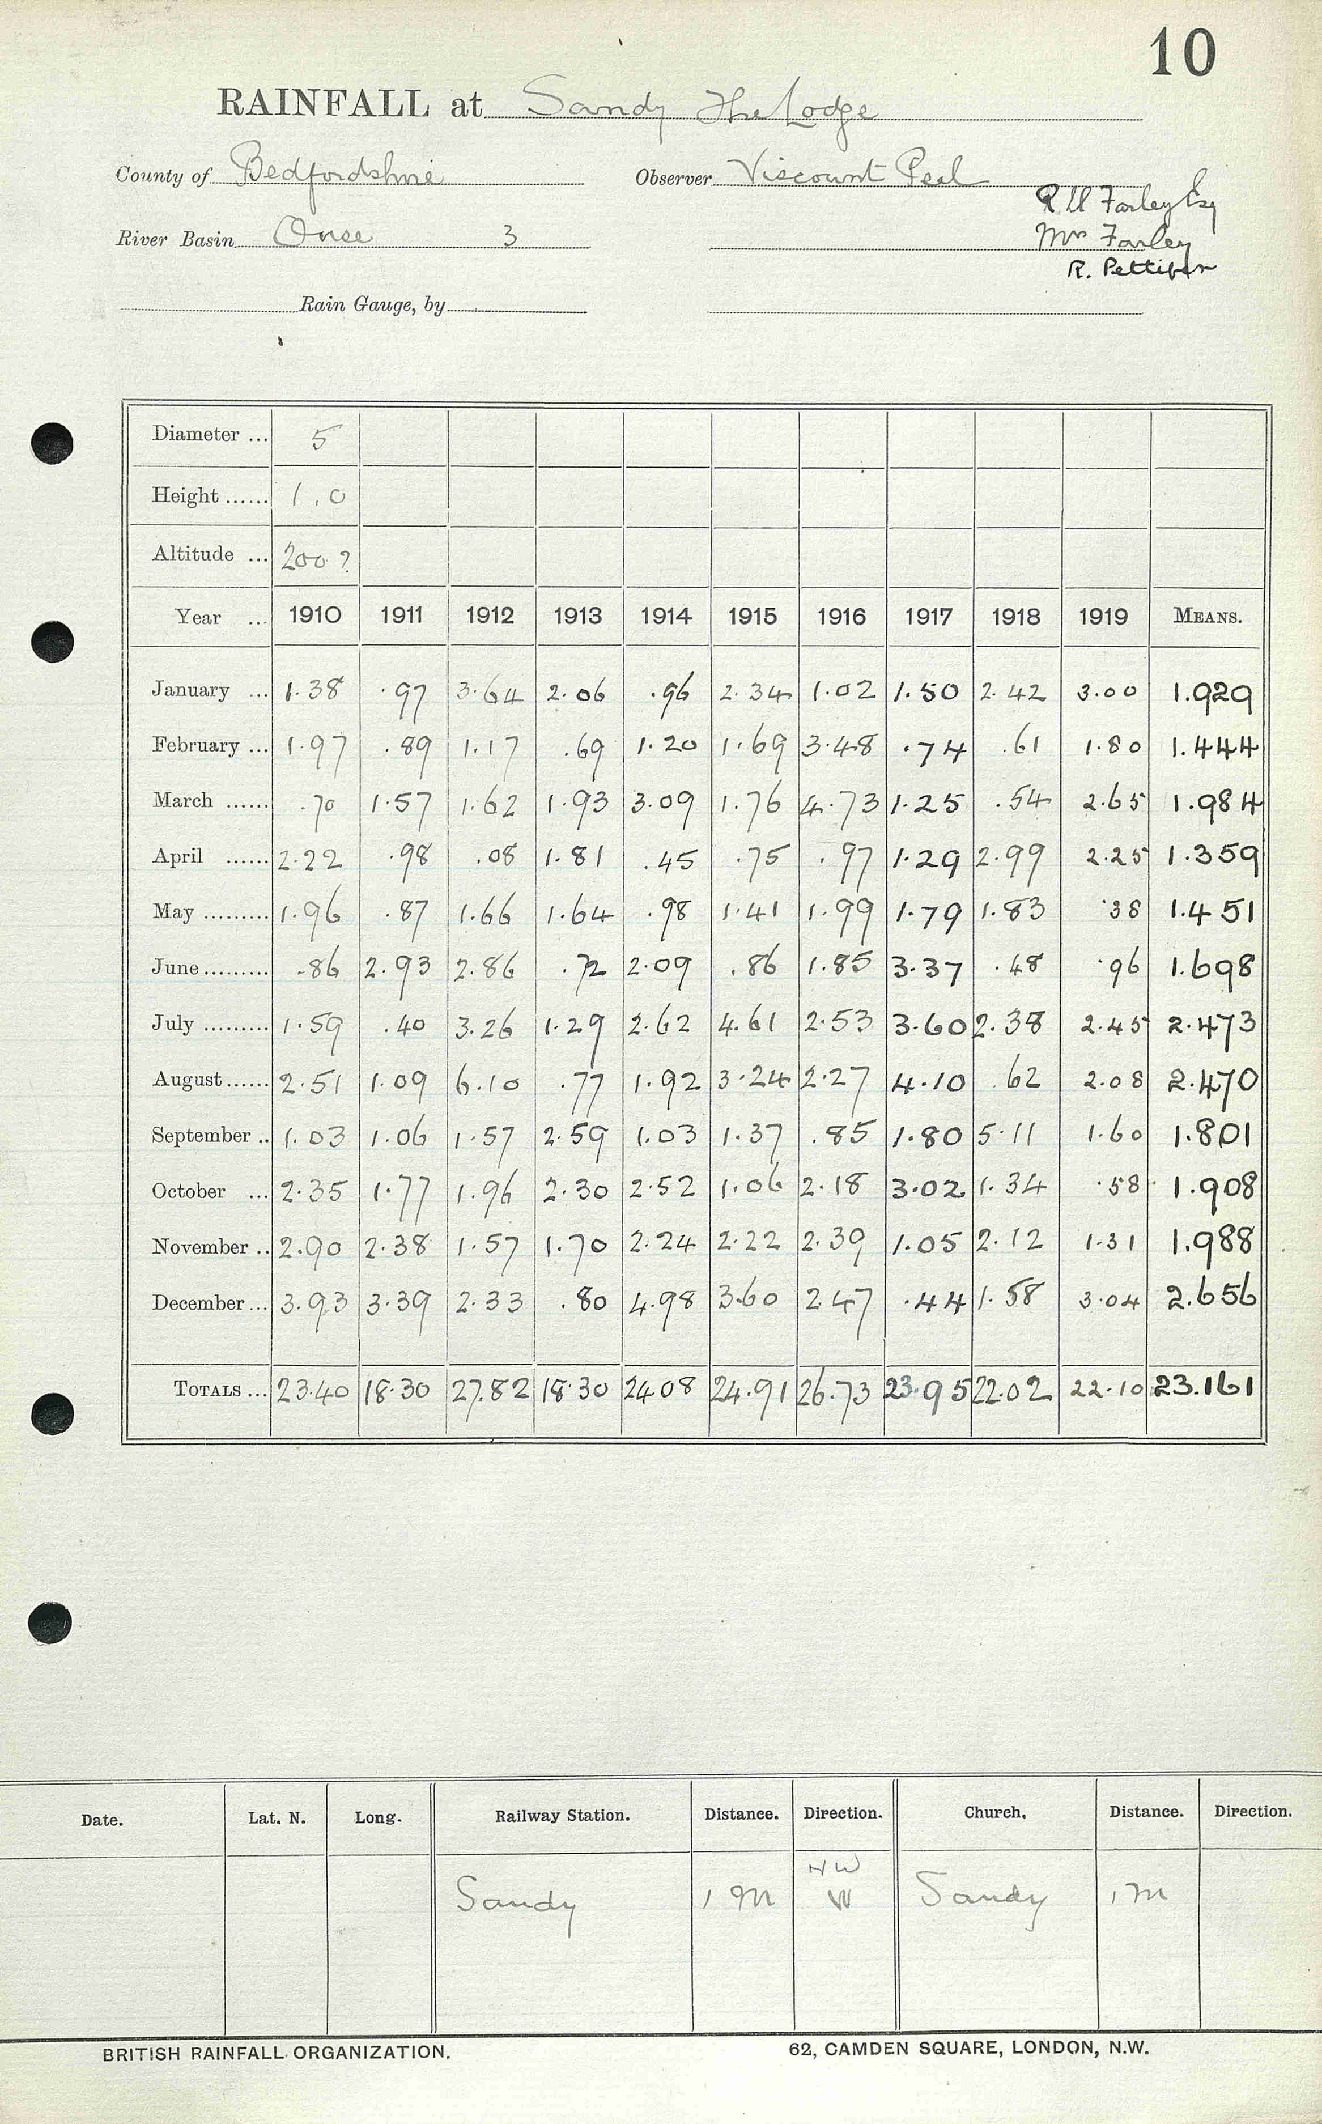 10
RAINFALL at Sandy The Lodge
County of Bedfordshire Observer Viscount Peel
R U Farley Esq
River Basin Ouse 3 Mrs Farley
R. Pettifer
Rain Gauge, by
Diameter ... 5
Height ...... 1.0
Altitude ... 200?
Year ... 1910 1911 1912 1913 1914 1915 1916 1917 1918 1919 MEANS.
January ... 1.38 .97 3.64 2.06 .96 2.34 1.02 1.50 2.42 3.00 1.929
February ... 1.97 .89 1.17 .69 1.20 1.69 3.48 .74 .61 1.80 1.444
March ...... .70 1.57 1.62 1.93 3.09 1.76 4.73 1.25 .54 2.65 1.984
April ...... 2.22 .98 .08 1.81 .45 .75 .97 1.29 2.99 2.25 1.359
May ......... 1.96 .87 1.66 1.64 .98 1.41 1.99 1.79 1.83 .38 1.451
June ......... .86 2.93 2.86 .72 2.09 .86 1.85 3.37 .48 .96 1.698
July ......... 1.59 .40 3.26 1.29 2.62 4.61 2.53 3.60 2.38 2.45 2.473
August ...... 2.51 1.09 6.10 .77 1.92 3.24 2.27 4.10 .62 2.08 2.470
September .. 1.03 1.06 1.57 2.59 1.03 1.37 .85 1.80 5.11 1.60 1.801
October ... 2.35 1.77 1.96 2.30 2.52 1.06 2.18 3.02 1.34 .58 1.908
November .. 2.90 2.38 1.57 1.70 2.24 2.22 2.39 1.05 2.12 1.31 1.988
December ... 3.93 3.39 2.33 .80 4.98 3.60 2.47 .44 1.58 3.04 2.656
TOTALS ... 23.40 18.30 27.82 18.30 24.08 24.91 26.73 23.95 22.02 22.10 23.161
Date. Lat. N. Long. Railway Station. Distance. Direction. Church. Distance. Direction.
NW
Sandy 1 m W Sandy 1 m
BRITISH RAINFALL ORGANIZATION. 62, CAMDEN SQUARE, LONDON, N.W.